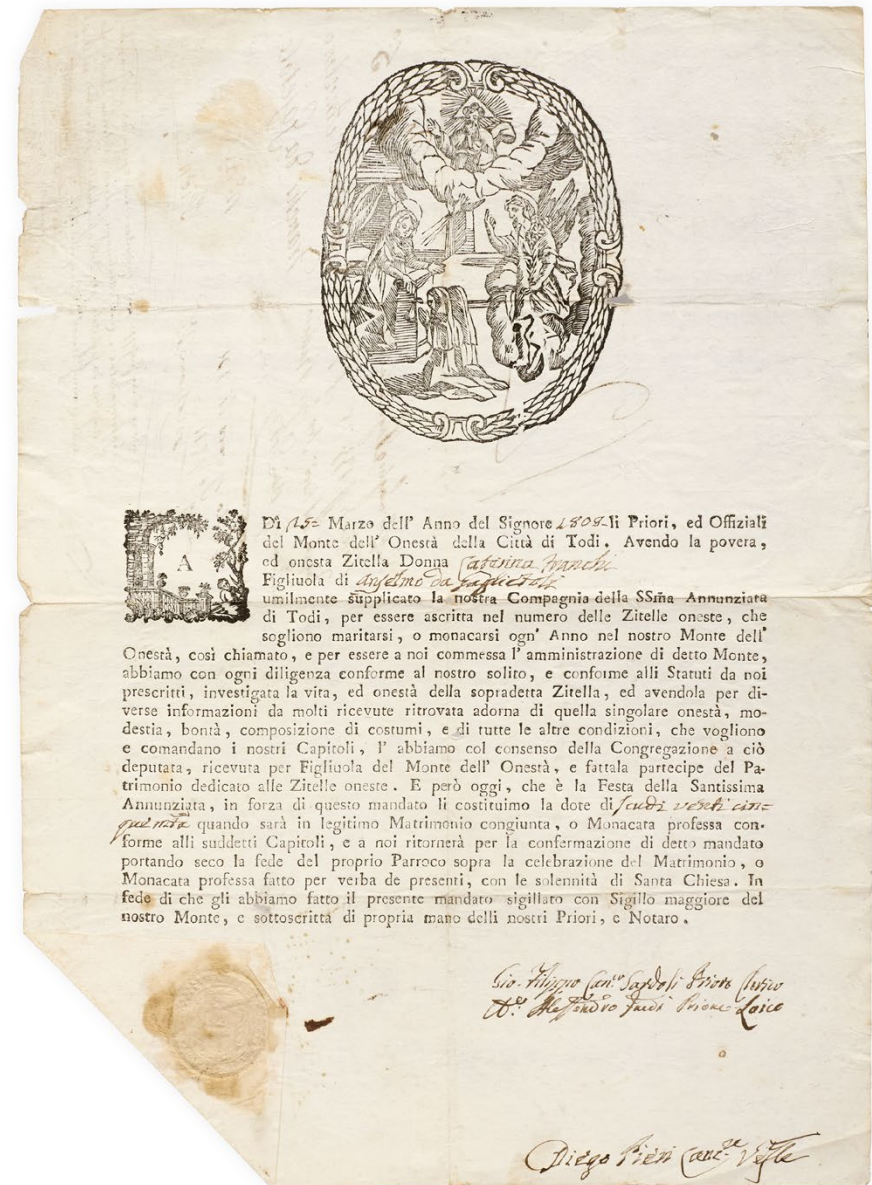 A
Dì 25 Marzo dell' Anno del Signore 1808 li Priori, ed Offiziali
del Monte dell' Onestà della Città di Todi. Avendo la povera,
ed onesta Zitella Donna Caterina Franchi
Figliuola di Anselmo da
umilmente supplicato la nostra Compagnia della SSm̃a Annunziata
di Todi, per essere ascritta nel numero delle Zitelle oneste, che
sogliono maritarsi, o monacarsi ogn' Anno nel nostro Monte dell'
Onestà, così chiamato, e per essere a noi commessa l' amministrazione di detto Monte,
abbiamo con ogni diligenza conforme al nostro solito, e conforme alli Statuti da noi
prescritti, investigata la vita, ed onestà della sopradetta Zitella, ed avendola per di-
verse informazioni da molti ricevute ritrovata adorna di quella singolare onestà, mo-
destia, bontà, composizione di costumi, e di tutte le altre condizioni, che vogliono
e comandano i nostri Capitoli, l' abbiamo col consenso della Congregazione a ciò
deputata, ricevuta per Figliuola del Monte dell' Onestà, e fattala partecipe del Pa-
trimonio dedicato alle Zitelle oneste. E però oggi, che è la Festa della Santissima
Annunziata, in forza di questo mandato li costituimo la dote di Scudi venti cin=
que mta quando sarà in legitimo Matrimonio congiunta, o Monacata professa con-
forme alli suddetti Capitoli, e a noi ritornerà per la confermazione di detto mandato
portando seco la fede del proprio Parroco sopra la celebrazione del Matrimonio, o
Monacata professa fatto per verba de presenti, con le solennità di Santa Chiesa. In
fede di che gli abbiamo fatto il presente mandato sigillato con Sigillo maggiore del
nostro Monte, e sottoscritta di propria mano delli nostri Priori, e Notaro.
Gio. Filippo Can.co Priore
Alessandro Priore Laico
Diego Pieri Canc.re